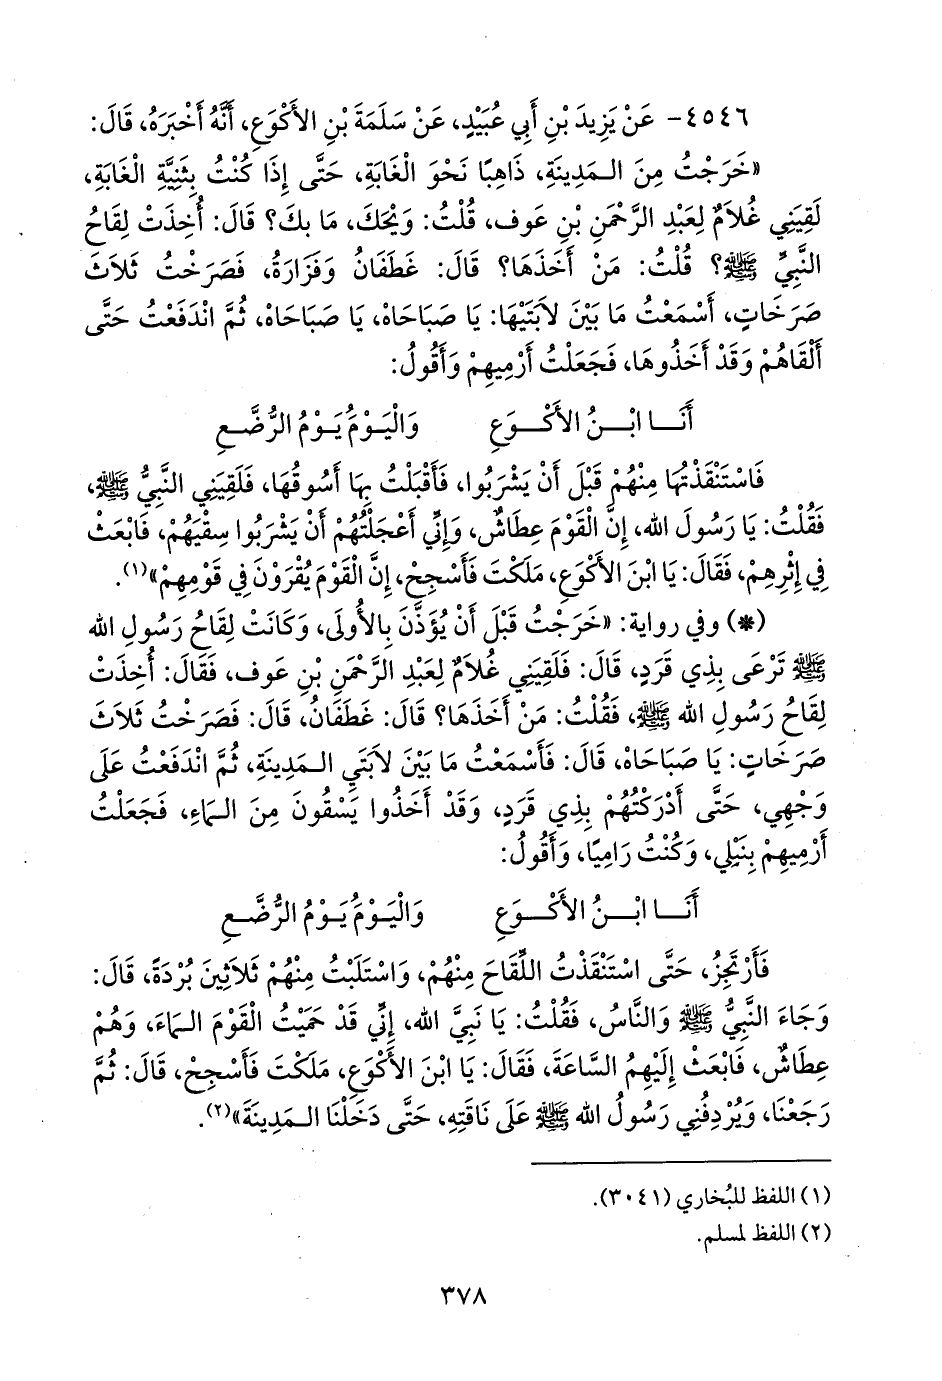 ٤٥٤٦- عَنْ يَزِيدَ بْنِ أَبِي عُبَيْدٍ، عَنْ سَلَمَةَ بْنِ الأَكْوَعِ، أَنَّهُ أَخْبَرَهُ، قَالَ:
«خَرَجْتُ مِنَ الـمَدِينَةِ، ذَاهِبًا نَحْوَ الْغَابَةِ، حَتَّى إِذَا كُنْتُ بِثَنِيَّةِ الْغَابَةِ،
لَقِيَنِي غُلاَمٌ لِعَبْدِ الرَّحْمَنِ بْنِ عَوف، قُلْتُ: وَيْحَكَ، مَا بِكَ؟ قَالَ: أُخِذَتْ لِقَاحُ
النَّبِيِّ ﷺ؟ قُلْتُ: مَنْ أَخَذَهَا؟ قَالَ: غَطَفَانُ وَفَزَارَةُ، فَصَرَخْتُ ثَلاَثَ
صَرَخَاتٍ، أَسْمَعْتُ مَا بَيْنَ لاَبَتَيْهَا: يَا صَبَاحَاهْ، يَا صَبَاحَاهْ، ثُمَّ انْدَفَعْتُ حَتَّى
أَلْقَاهُمْ وَقَدْ أَخَذُوهَا، فَجَعَلْتُ أَرْمِيهِمْ وَأَقُولُ:
أَنَـــا ابْـــنُ الأَكْـــوَعِ وَالْيَـوْمُ يَـوْمُ الرُّضَّـــعِ
فَاسْتَنْقَذْتُهَا مِنْهُمْ قَبْلَ أَنْ يَشْرَبُوا، فَأَقْبَلْتُ بِهَا أَسُوقُهَا، فَلَقِيَنِي النَّبِيُّ ﷺ،
فَقُلْتُ: يَا رَسُولَ الله، إِنَّ الْقَوْمَ عِطَاشٌ، وَإِنِّي أَعْجَلْتُهُمْ أَنْ يَشْرَبُوا سِقْيَهُمْ، فَابْعَثْ
فِي إِثْرِهِمْ، فَقَالَ: يَا ابْنَ الأَكْوَعِ، مَلَكْتَ فَأَسْجِحْ، إِنَّ الْقَوْمَ يُقْرَوْنَ فِي قَوْمِهِمْ»(١).
(*) وفي رواية: «خَرَجْتُ قَبْلَ أَنْ يُؤَذَّنَ بِالأُولَى، وَكَانَتْ لِقَاحُ رَسُولِ الله
ﷺ تَرْعَى بِذِي قَرَدٍ، قَالَ: فَلَقِيَنِي غُلاَمٌ لِعَبْدِ الرَّحْمَنِ بْنِ عَوف، فَقَالَ: أُخِذَتْ
لِقَاحُ رَسُولِ الله ﷺ، فَقُلْتُ: مَنْ أَخَذَهَا؟ قَالَ: غَطَفَانُ، قَالَ: فَصَرَخْتُ ثَلاَثَ
صَرَخَاتٍ: يَا صَبَاحَاهْ، قَالَ: فَأَسْمَعْتُ مَا بَيْنَ لاَبَتَيِ الـمَدِينَةِ، ثُمَّ انْدَفَعْتُ عَلَى
وَجْهِي، حَتَّى أَدْرَكْتُهُمْ بِذِي قَرَدٍ، وَقَدْ أَخَذُوا يَسْقُونَ مِنَ الـمَاءِ، فَجَعَلْتُ
أَرْمِيهِمْ بِنَبْلِي، وَكُنْتُ رَامِيًا، وَأَقُولُ:
أَنَـــا ابْـــنُ الأَكْـــوَعِ وَالْيَـوْمُ يَـوْمُ الرُّضَّـــعِ
فَأَرْتَجِزُ، حَتَّى اسْتَنْقَذْتُ اللِّقَاحَ مِنْهُمْ، وَاسْتَلَبْتُ مِنْهُمْ ثَلاَثِينَ بُرْدَةً، قَالَ:
وَجَاءَ النَّبِيُّ ﷺ وَالنَّاسُ، فَقُلْتُ: يَا نَبِيَّ الله، إِنِّي قَدْ حَمَيْتُ الْقَوْمَ الـمَاءَ، وَهُمْ
عِطَاشٌ، فَابْعَثْ إِلَيْهِمُ السَّاعَةَ، فَقَالَ: يَا ابْنَ الأَكْوَعِ، مَلَكْتَ فَأَسْجِحْ، قَالَ: ثُمَّ
رَجَعْنَا، وَيُرْدِفُنِي رَسُولُ الله ﷺ عَلَى نَاقَتِهِ، حَتَّى دَخَلْنَا الـمَدِينَةَ»(٢).
(١) اللفظ للبُخاري (٣٠٤١).
(٢) اللفظ لمسلم.
٣٧٨